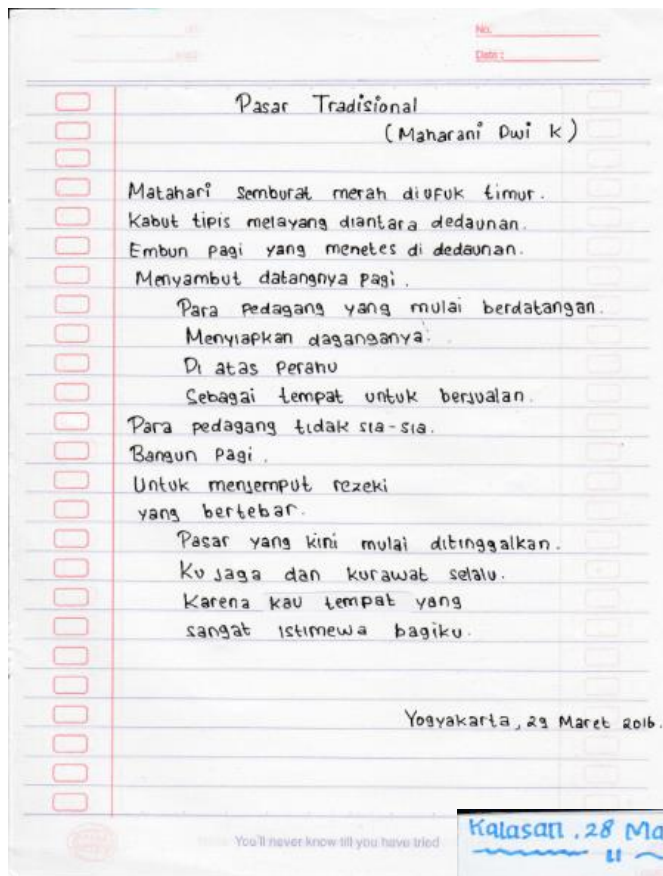 No.
Date :
Pasar Tradisional
(Maharani Dwi K)
Matahari semburat merah diufuk timur.
Kabut tipis melayang diantara dedaunan.
Embun pagi yang menetes di dedaunan.
Menyambut datangnya pagi.
Para pedagang yang mulai berdatangan.
Menyiapkan daganganya.
Di atas perahu
Sebagai tempat untuk berjualan.
Para pedagang tidak sia-sia.
Bangun Pagi.
Untuk menjemput rezeki
yang bertebar.
Pasar yang kini mulai ditinggalkan.
Ku jaga dan kurawat selalu.
Karena kau tempat yang
sangat istimewa bagiku.
Yogyakarta, 29 Maret 2016.
You'll never know till you have tried
Kalasan, 28 Ma